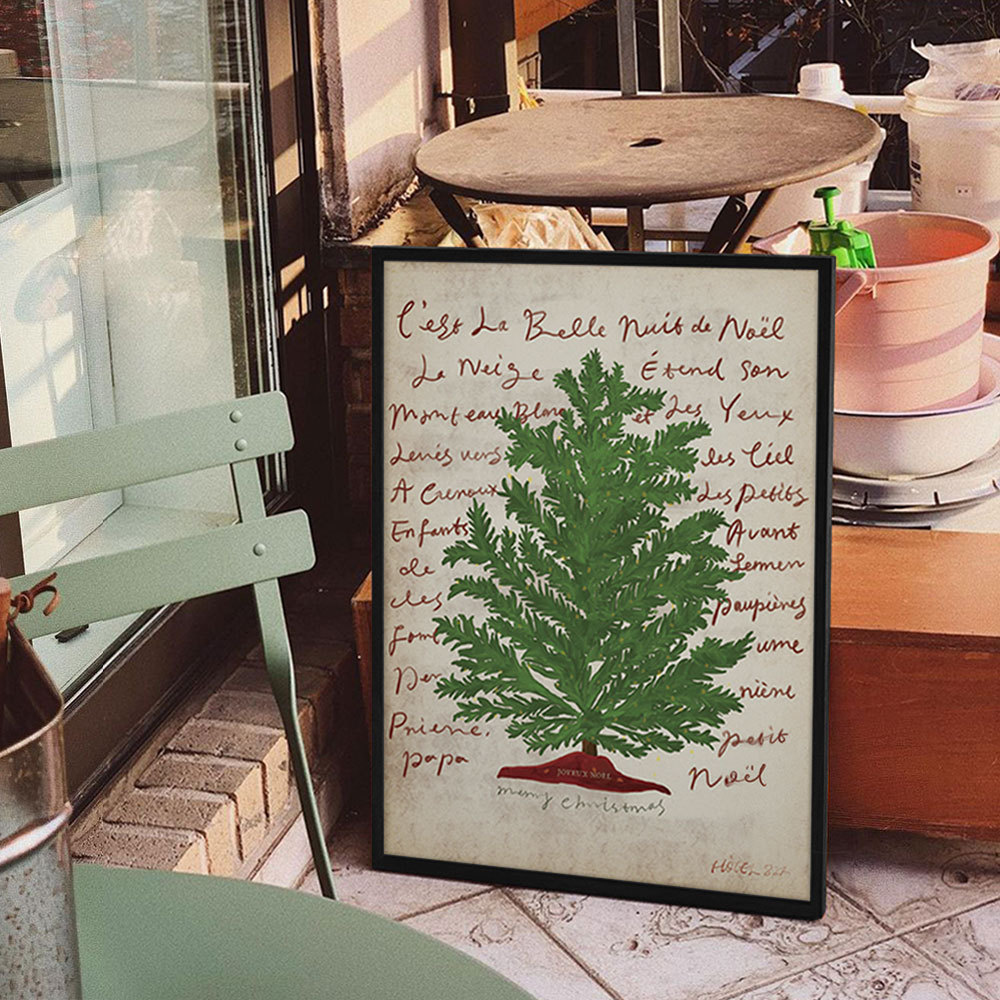 C'est La Belle Nuit de Noël
La Neige Étend Son
Manteau Blanc et Les Yeux
Levés vers les Ciel
A Genoux Les Petits
Enfants Avant
de Fermer
des paupières
Font une
Der nière
Prière.
petit
papa Noël
JOYEUX NOEL
merry christmas